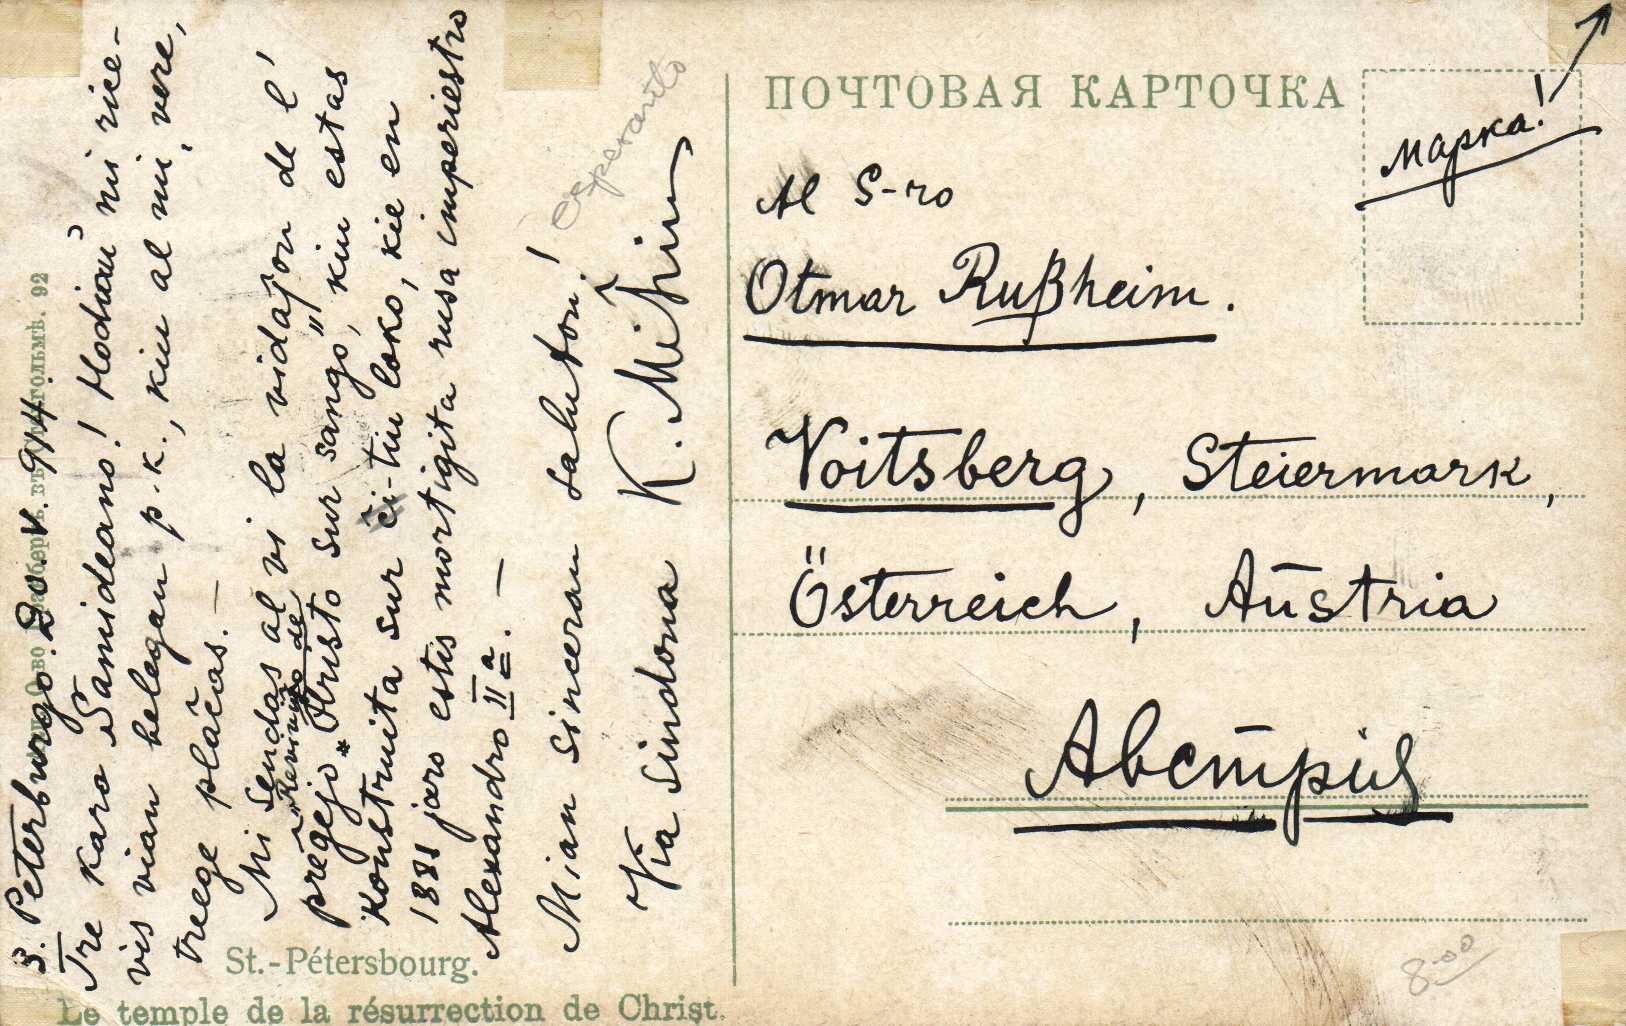 S. Peterburgo. 20. V. 914.
Tre kara Samideano! Hodiaŭ mi rice-
vis vian belegan p.k., kiu al mi, vere,
treege plaĉas. —
Mi sendas al vi la vidaĵon de l'
"Reviviĝo de
preĝejo Kristo sur sango", kiu estas
konstruita sur ĉi-tiu loko, kie en
1881 jaro estis mortigita rusa imperiestro
Alexandro II-a. —
Mian sinceran saluton!
Via sindona K.
esperanto
St.-Pétersbourg.
Le temple de la résurrection de Christ.
92
ПОЧТОВАЯ КАРТОЧКА
марка!
Al S-ro
Otmar Rußheim.
Voitsberg, Steiermark,
Österreich, Aŭstria
Австрія
8.00